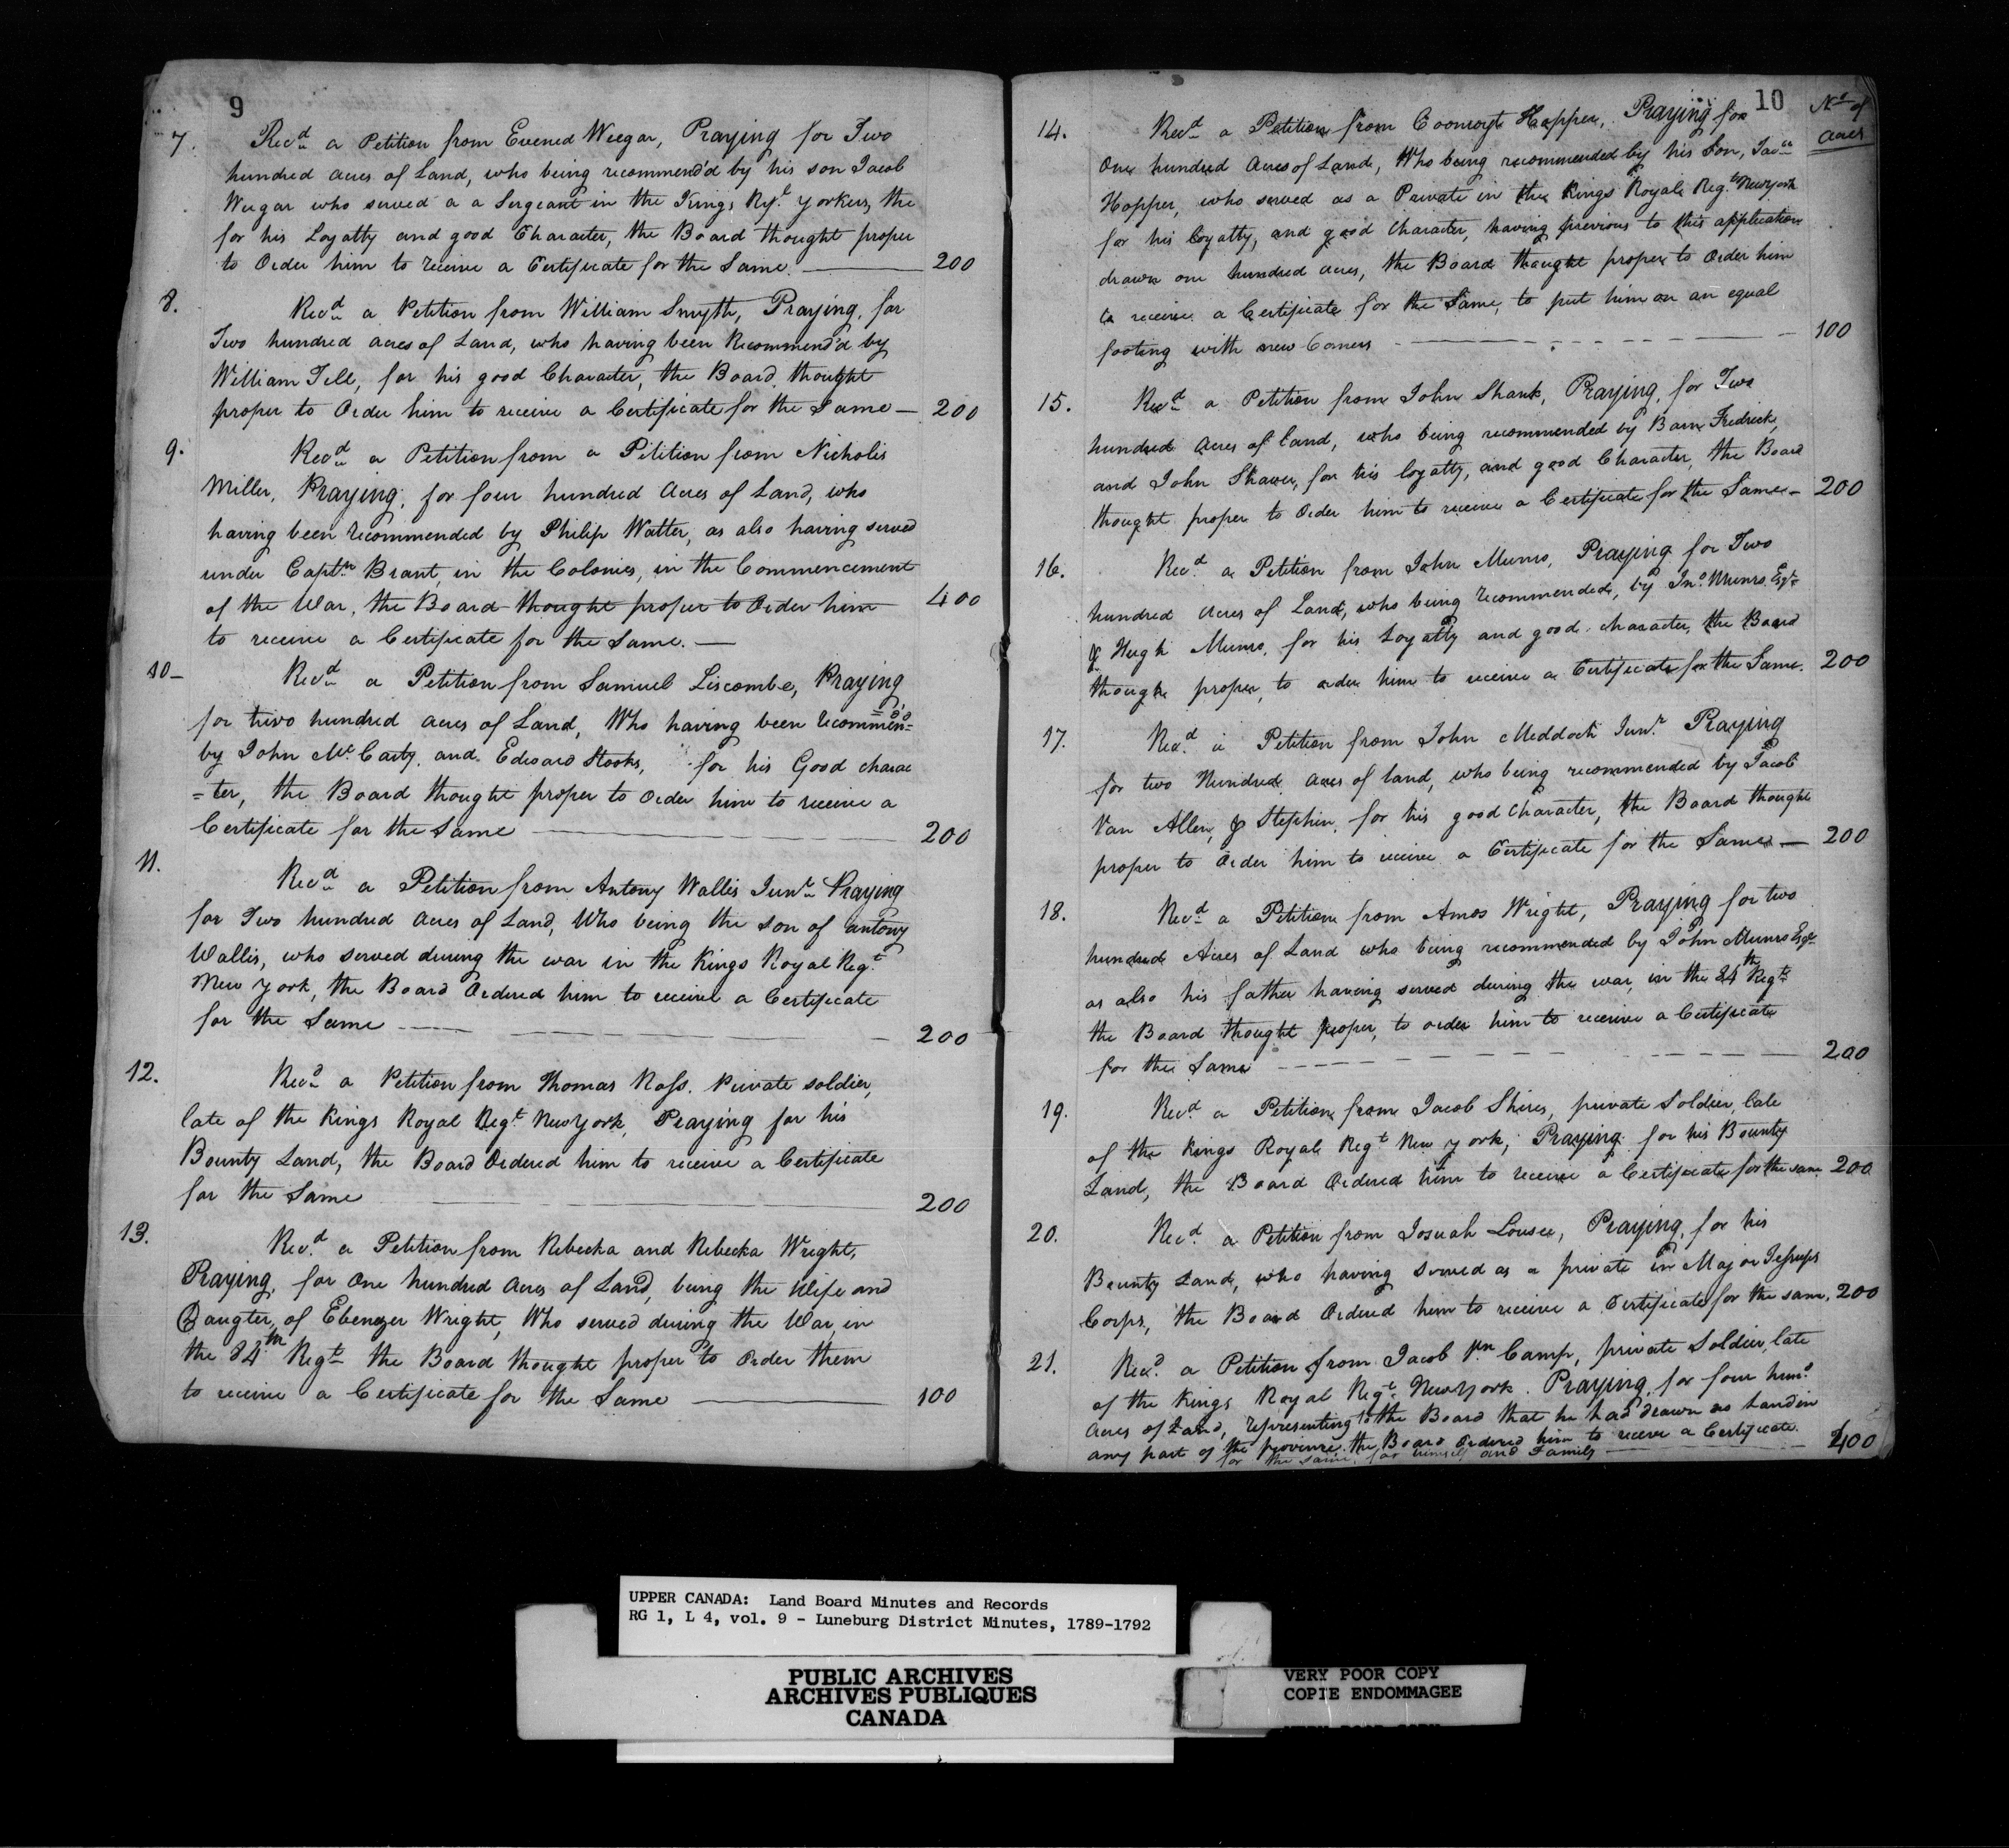 9
7. Recd a Petition from Evened Weegar, Praying for Two
hundred acres of Land, who being recommend'd by his son Jacob
Weegar who served a a Sergeant in the Kings Regt Yorkers, the
for his Loyatty and good Character, the Board thought proper
to Order him to receive a Certificate for the Same. 200
8. Recd a Petition from William Smyth, Praying, for
Two hundred acres of Land, who having been Recommend'd by
William Tell, for his good Character, the Board thought
proper to Order him to receive a Certificate for the Same — 200
9. Recd a Petition from a Petition from Nicholis
Miller, Praying, for four hundred Acres of Land, who
having been recommended by Philip Watter, as also having served
under Captn Brant, in the Colonies, in the Commencement
of the War, the Board thought proper to Order him 400
to receive a Certificate for the Same. —
10 — Recd a Petition from Samuel Liscombe, Praying
for two hundred acres of Land, Who having been recommen=
=d'd
by John McCarty and Edward Stooks, for his Good charac
=ter, the Board thought proper to Order him to receive a
Certificate for the Same 200
11. Recd a Petition from Antony Wallis Junr Praying
for Two hundred Acres of Land, Who being the son of antony
Wallis, who served during the war in the Kings Royal Regt
New York, the Board Ordered him to receive a Certificate
for the Same 200
12. Recd a Petition from Thomas Ross. Private soldier,
late of the Kings Royal Regt New York, Praying for his
Bounty Land, the Board Ordered him to receive a Certificate
for the Same 200
13. Recd a Petition from Rebecka and Rebecka Wright,
Praying, for One hundred Acres of Land, being the Wife and
Daugter, of Ebenezer Wright, Who served during the War, in
the 84th Regt the Board thought proper to Order them
to receive a Certificate for the Same 100
10
No of
acres
14. Recd a Petition from Hopper, Praying for
One hundred Acres of Land, Who being recommended by his Son,
Hopper, who served as a Private in the Kings Royal Regt New York
for his loyatty, and good Character, having previous to this application
drawn one hundred acres, the Board thought proper to Order him
to receive a Certificate for the Same, to put him on an equal
footing with new Comers 100
15. Recd a Petition from John Shank, Praying, for Two
hundred Acres of land, who being recommended by Fredrick,
and John Shaver, for his loyatty, and good Character, the Board
thought proper to Order him to receive a Certificate for the Same — 200
16. Recd a Petition from John Munro, Praying for Two
hundred acres of Land, who being recommended, by Jno Munro Esqr
& Hugh Munro, for his Loyatty and good character, the Board
thought proper, to order him to receive a Certificate for the Same. 200
17. Recd a Petition from John Meddock Junr Praying
for two Hundred acres of land, who being recommended by Jacob
Van Allen, & Stephen, for his good Character, the Board thought
proper to Order him to receive a Certificate for the Same — 200
18. Recd a Petition from Amos Wright, Praying for two
hundred Acres of Land who being recommended by John Munro Esqr
as also his father having served during the war, in the 84th Regt
the Board thought proper, to order him to receive a Certificate
for the Same 200
19. Recd a Petition from Jacob Shires, private Soldier, late
of the Kings Royal Regt New York, Praying for his Bounty
Land, the Board Ordered him to receive a Certificate for the same 200
20. Recd a Petition from Josuah Lousee, Praying, for his
Bounty Land, who having served as a private in Major Jessups
Corps, the Board Ordered him to receive a Certificate for the same, 200
21. Recd a Petition from Jacob Vn Camp, private Soldier, late
of the Kings Royal Regt New York. Praying, for four hund
Acres of Land, representing to the Board that he had drawn no Land in
any part of the province. the Board Ordered him to receve a Certificate.
for the same, for himself and Family 400
UPPER CANADA: Land Board Minutes and Records
RG 1, L 4, vol. 9 - Luneburg District Minutes, 1789-1792
PUBLIC ARCHIVES
ARCHIVES PUBLIQUES
CANADA
VERY POOR COPY
COPIE ENDOMMAGEE